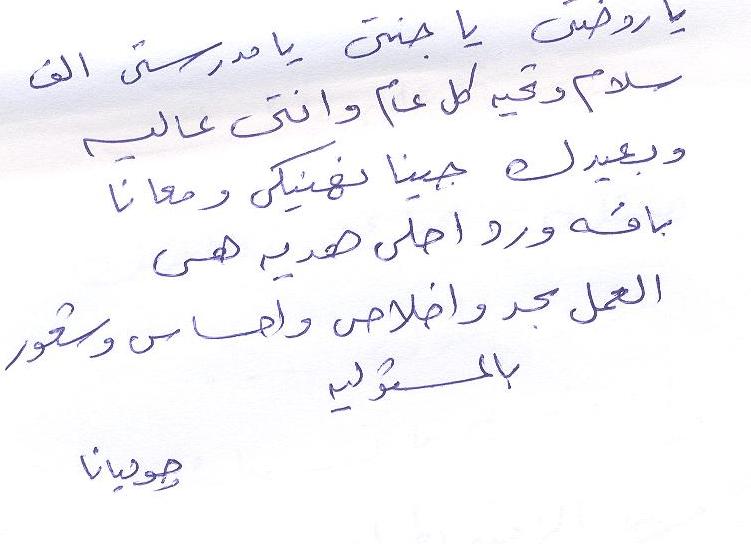 يا روضتى يا جنتى يا مدرستى الف
سلام وتحيه كل عام وانتى عاليه
وبعيدك جينا نهنيكى ومعانا
باقه ورد احلى هديه هى
العمل بجد واخلاص واحساس وشعور
بالمسئوليه
جوليانا